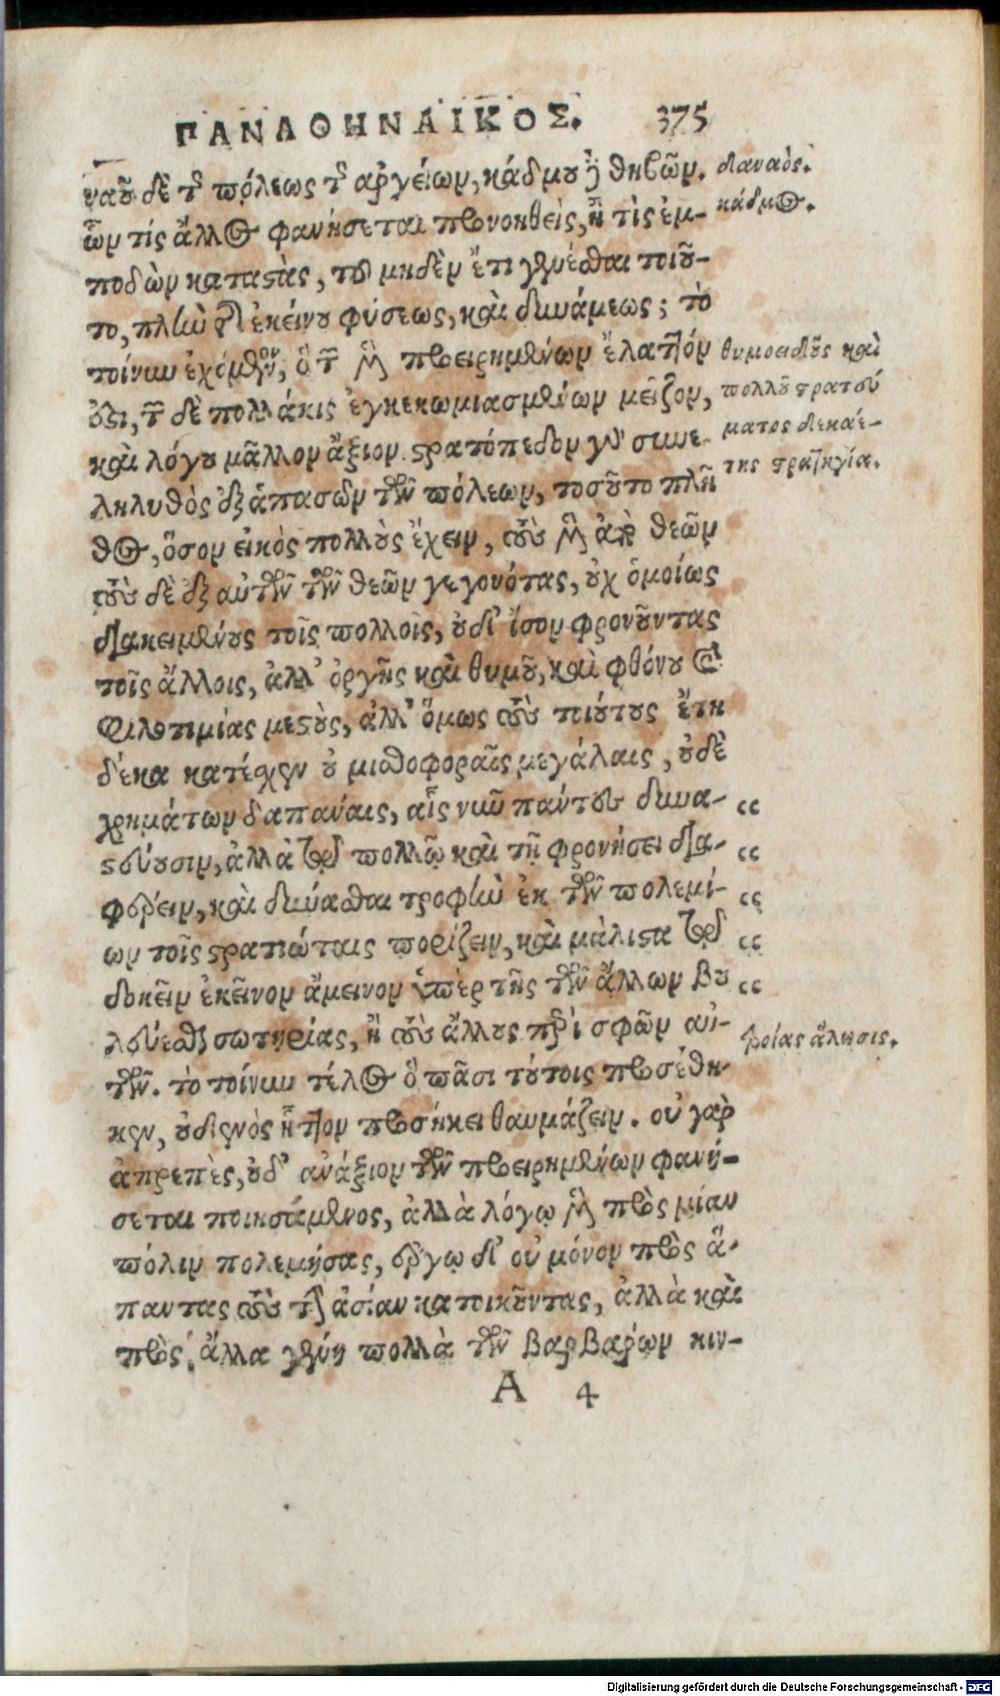 ΠΑΝΑΘΗΝΑΪΚΟΣ. 375
ναοῦ δὲ τῆς πόλεως τῆς ἀργείων, κάδμου ἢ θηβῶν.
δαναὸς.
ὧν τίς ἄλλος φανήσεται προνοηθεὶς, ἢ τὶς ἐμ-
κάδμος.
ποδὼν καταστὰς, τοῦ μηδὲν ἔτι γενέσθαι τοιοῦ-
το, πλὴν τῆς ἐκείνου φύσεως, καὶ δυνάμεως; τὸ
τοίνυν ἐχόμενον, ὃ τῶν μὲν προειρημένων ἔλαττόν
θυμοειδοῦς καὶ
ἐστι, τῶν δὲ πολλάκις ἐγκεκωμιασμένων μεῖζον,
πολλοῦ στρατεύ
καὶ λόγου μᾶλλον ἄξιον. στρατόπεδον γὰρ συνε-
ματος δεκαέ-
ληλυθὸς ἐξ ἁπασῶν τῶν πόλεων, τοσοῦτο πλῆ
της στρατηγία.
θος, ὅσον εἰκὸς πολλοὺς ἔχειν, τοὺς μὲν ἀπὸ θεῶν
τοὺς δὲ ἐξ αὐτῶν τῶν θεῶν γεγονότας, οὐχ ὁμοίως
διακειμένους τοῖς πολλοῖς, οὐδ' ἴσον φρονοῦντας
τοῖς ἄλλοις, ἀλλ' ὀργῆς καὶ θυμοῦ, καὶ φθόνου καὶ
φιλοτιμίας μεστοὺς, ἀλλ' ὅμως τοὺς τοιούτους ἔτη
δέκα κατέσχεν οὐ μισθοφοραῖς μεγάλαις, οὐδὲ
χρημάτων δαπάναις, αἷς νῦν πάντες δυνα- “
στεύουσιν, ἀλλὰ τῷ πολλῷ καὶ τῇ φρονήσει δια- “
φέρειν, καὶ δύνασθαι τροφὴν ἐκ τῶν πολεμί- “
ων τοῖς στρατιώταις πορίζειν, καὶ μάλιστα τῷ “
δοκεῖν ἐκεῖνον ἄμεινον ὑπὲρ τῆς τῶν ἄλλων βου “
λεύεσθαι σωτηρίας, ἢ τοὺς ἄλλους περὶ σφῶν αὐ-
τροίας ἅλωσις.
τῶν. τὸ τοίνυν τέλος ὃ πᾶσι τούτοις προσέθη-
κεν, οὐδενὸς ἧττον προσήκει θαυμάζειν. οὐ γὰρ
ἀπρεπὲς, οὐδ' ἀνάξιον τῶν προειρημένων φανή-
σεται ποιησάμενος, ἀλλὰ λόγῳ μὲν πρὸς μίαν
πόλιν πολεμήσας, ἔργῳ δ' οὐ μόνον πρὸς ἅ-
παντας τοὺς τὴν ἀσίαν κατοικοῦντας, ἀλλὰ καὶ
πρὸς ἄλλα γένη πολλὰ τῶν βαρβάρων κιν-
A 4
Digitalisierung gefördert durch die Deutsche Forschungsgemeinschaft - DFG